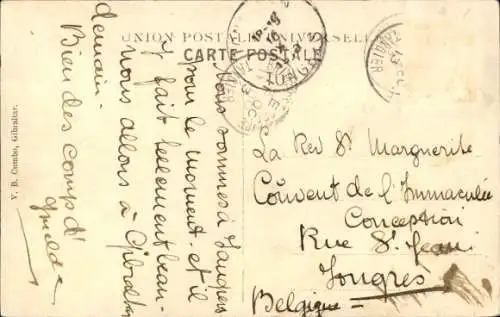 UNION POSTALE UNIVERSELLE
CARTE POSTALE
Nous sommes à Tangiers
pour le moment - et il
y fait tellement beau -
nous allons à Gibraltar
demain.
Bien des
V. B. Cumbo, Gibraltar.
La Rev St Marguerite
Couvent de l'Immaculée
Conception
Rue St Jean
Tongres
Belgique